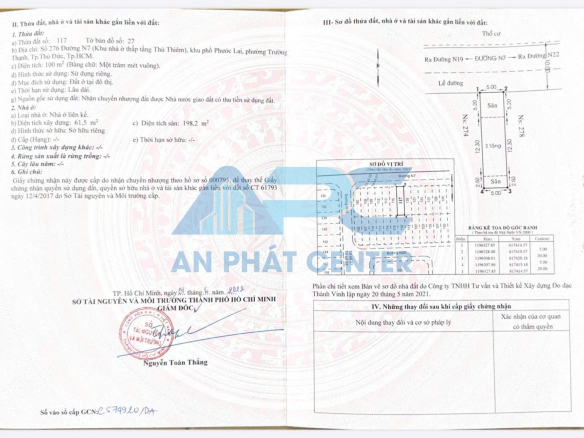 II. Thửa đất, nhà ở và tài sản khác gắn liền với đất:
1. Thửa đất:
a) Thửa đất số: 117 Tờ bản đồ số: 27
b) Địa chỉ: Số 276 Đường N7 (Khu nhà ở thấp tầng Thủ Thiêm), khu phố Phước Lai, phường Trường
Thạnh, Tp.Thủ Đức, Tp.HCM.
c) Diện tích: 100 m² (Bằng chữ: Một trăm mét vuông).
d) Hình thức sử dụng: Sử dụng riêng.
đ) Mục đích sử dụng: Đất ở tại đô thị.
e) Thời hạn sử dụng: Lâu dài.
g) Nguồn gốc sử dụng đất: Nhận chuyển nhượng đất được Nhà nước giao đất có thu tiền sử dụng đất.
2. Nhà ở:
a) Loại nhà ở: Nhà ở liên kế.
b) Diện tích xây dựng: 61,5 m² c) Diện tích sàn: 198,2 m²
d) Hình thức sở hữu: Sở hữu riêng
đ) Cấp (Hạng): -/- e) Thời hạn sở hữu: -/-
3. Công trình xây dựng khác: -/-
4. Rừng sản xuất là rừng trồng: -/-
5. Cây lâu năm: -/-
6. Ghi chú:
Giấy chứng nhận này được cấp do nhận chuyển nhượng theo hồ sơ số 000795, để thay thế Giấy
chứng nhận quyền sử dụng đất, quyền sở hữu nhà ở và tài sản khác gắn liền với đất số CT 61793
ngày 12/4/2017 do Sở Tài nguyên và Môi trường cấp.
APC
AN PHÁT CENTER
TP. Hồ Chí Minh, ngày
SỞ TÀI NGUYÊN VÀ MÔI TRƯỜNG THÀNH PHỐ HỒ CHÍ MINH
GIÁM ĐỐC
SỞ
TÀI NGUYÊN
VÀ MÔI TRƯỜNG
Nguyễn Toàn Thắng
Số vào sổ cấp GCN:
III- Sơ đồ thửa đất, nhà ở và tài sản khác gắn liền với đất:
Thổ cư
Ra Đường N19 ← ĐƯỜNG N7 → Ra Đường N22
Lề đường
5.00
Sân
5.20
5.20
Nc. 274
Nc. 278
12.30
12.30
Sân
5.00
SƠ ĐỒ VỊ TRÍ
Đường N7
117
BẢNG KÊ TỌA ĐỘ GÓC RANH
Phần chi tiết xem Bản vẽ sơ đồ nhà đất do Công ty TNHH Tư vấn và Thiết kế Xây dựng Đo đạc
Thành Vinh lập ngày 20 tháng 5 năm 2021.
IV. Những thay đổi sau khi cấp giấy chứng nhận
Nội dung thay đổi và cơ sở pháp lý
Xác nhận của cơ quan
có thẩm quyền